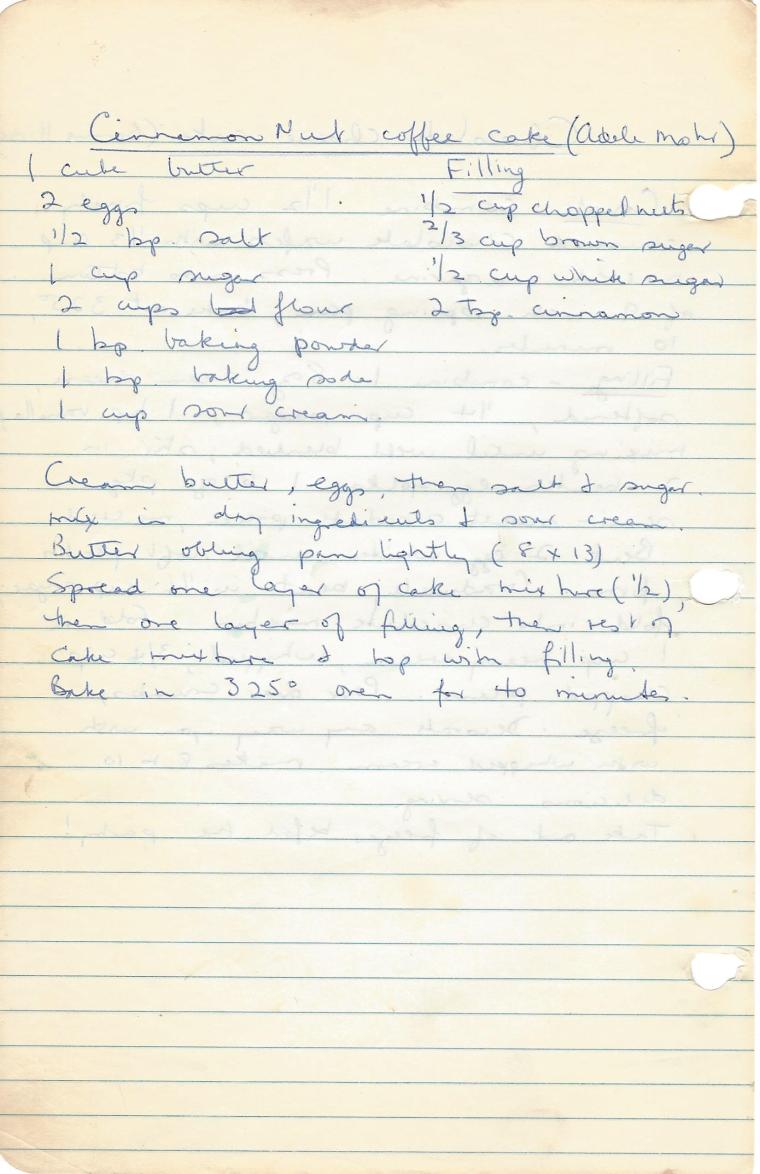 Cinnamon Nut coffee cake (Adele Mohr)
1 cube butter
2 eggs
1/2 tsp. salt
1 cup sugar
2 cups flour
1 tsp. baking powder
1 tsp. baking soda
1 cup sour cream.
Filling
1/2 cup chopped nuts
2/3 cup brown sugar
1/2 cup white sugar
2 Tsp. cinnamon
Cream butter, eggs, then salt & sugar.
mix in dry ingredients & sour cream.
Butter oblong pan lightly (8 x 13)
Spread one layer of cake mixture (1/2),
then one layer of filling, then rest of
cake mixture & top with filling.
Bake in 325° oven for 40 minutes.